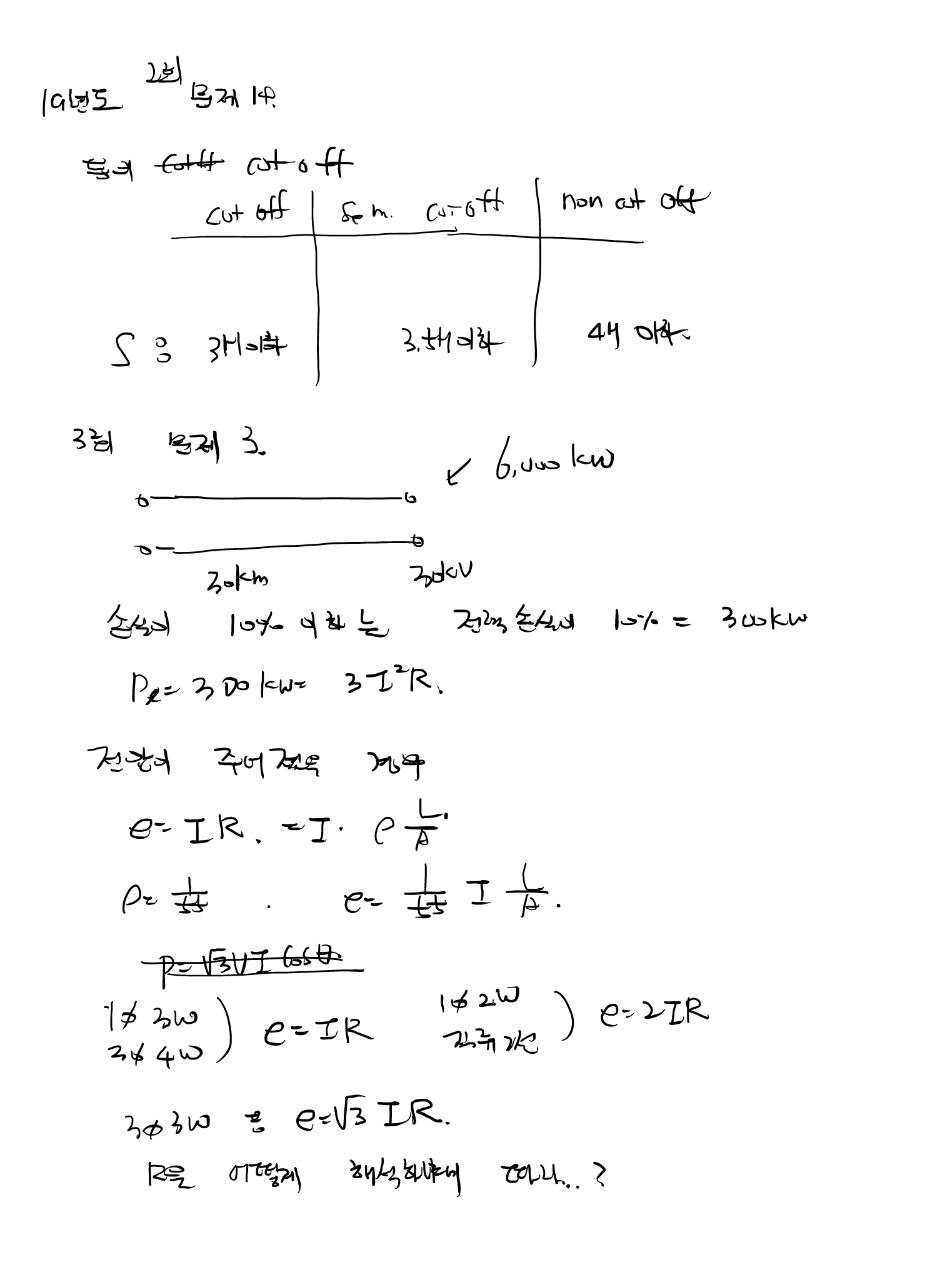 19년도 2회 문제 14.
등의 cut off
cut off sem. cut off non cut off
S 은 3H이하 3.5H이하 4H 이하.
3회 문제 3.
6,000kW
30km 30kV
손실이 10% 이하는 전력손실이 10% = 300kW
Pℓ= 300kW= 3I²R.
전압이 주어졌을 경우
e= IR. = I· ρ L/A.
ρ= 1/55 . e= 1/55 I L/A.
P=√3VI cosθ.
1φ 3W
3φ 4W ) e=IR 1φ2W
직류2선 ) e=2IR
3φ3W 은 e=√3 IR.
R을 어떻게 해석하냐에 따라..?